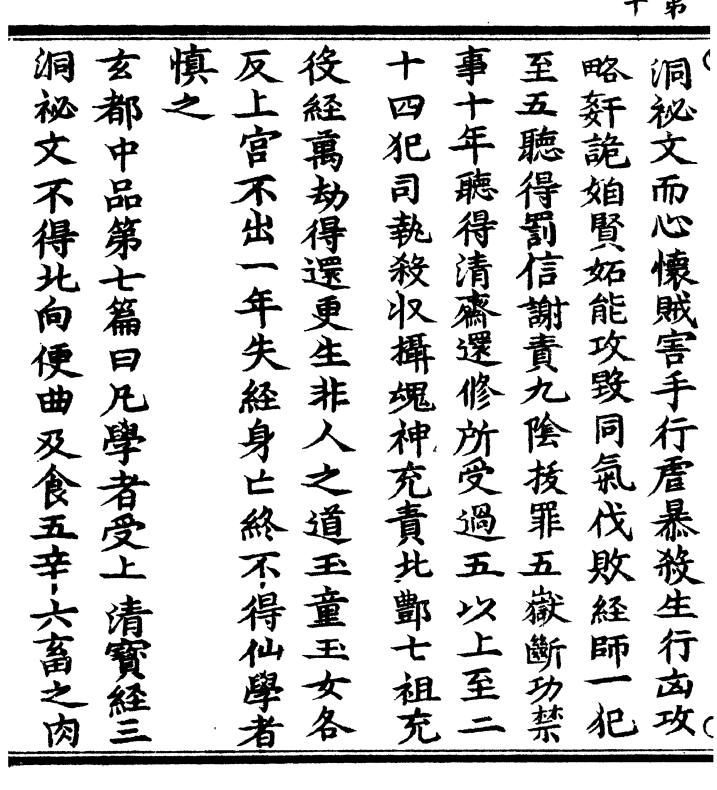 洞祕文而心懷賊害手行虐暴殺生行凶攻
略姧詭賢妬能攻毀同氣伐敗経師一犯
至五聽得罰信謝責九陰拔罪五嶽斷功禁
事十年聽得清齋還修所受過五以上至二
十四犯司執殺収攝魂神充責北酆七祖充
役経萬劫得還更生非人之道玉童玉女各
反上宮不出一年失経身亡終不得仙學者
慎之
玄都中品第七篇曰凡學者受上清寳経三
洞祕文不得北向便曲及食五辛六畜之肉